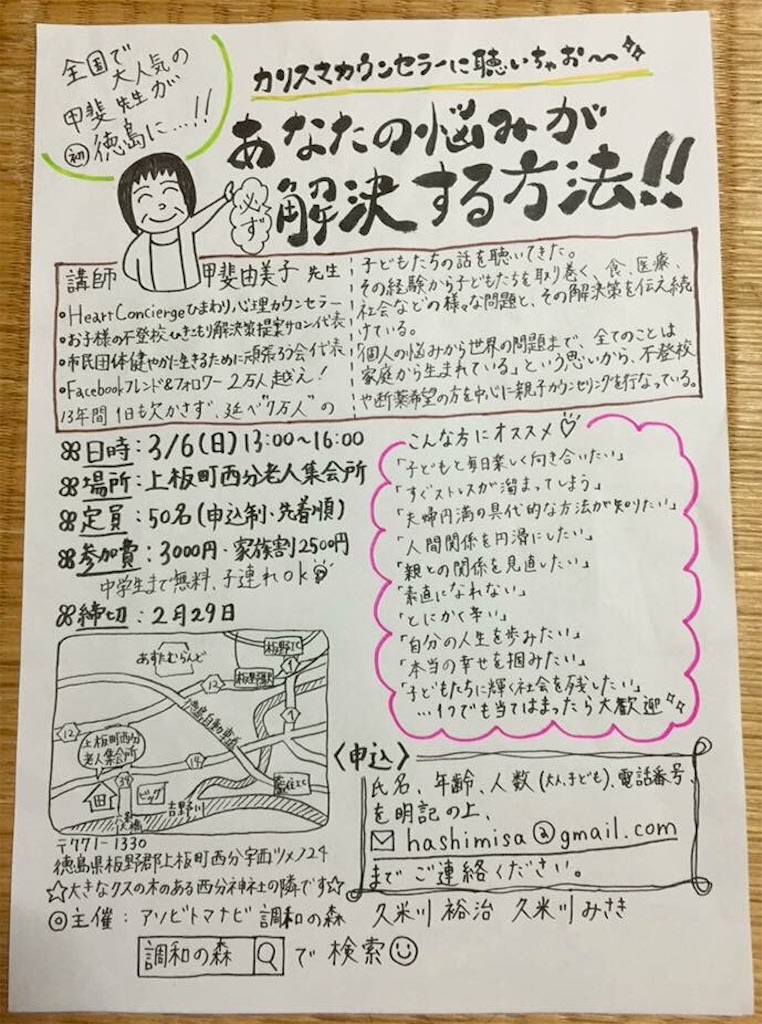 全国で
大人気の
甲斐先生が
初 徳島に…!!
カリスマカウンセラーに聴いちゃお〜
あなたの悩みが
必ず
解決する方法!!
講師 甲斐由美子 先生
・Heart Conciergeひまわり心理カウンセラー
・お子様の不登校ひきこもり解決策提案サロン代表
・市民団体健やかに生きるために頑張ろう会代表
・Facebookフレンド&フォロワー 2万人越え!
13年間1日も欠かさず、延べ"7万人"の
子どもたちの話を聴いてきた。
その経験から子どもたちを取り巻く、食、医療、
社会などの様々な問題と、その解決策を伝え続
けている。
「個人の悩みから世界の問題まで、全てのことは
家庭から生まれている」という思いから、不登校
や断薬希望の方を中心に親子カウンセリングを行なっている。
日時:3/6(日)13:00〜16:00
場所:上板町西分老人集会所
定員:50名(申込制・先着順)
参加費:3000円・家族割2500円
中学生まで無料、子連れok
締切:2月29日
こんな方にオススメ♡
「子どもと毎日楽しく向き合いたい」
「すぐストレスが溜まってしまう」
「夫婦円満の具代的な方法が知りたい」
「人間関係を円滑にしたい」
「親との関係を見直したい」
「素直になれない」
「とにかく辛い」
「自分の人生を歩みたい」
「本当の幸せを掴みたい」
「子どもたちに輝く社会を残したい」
…1つでも当てはまったら大歓迎
あすたむらんど
板野IC
板野駅
1
12
徳島自動車道
1
12
上板町西分
老人集会所
14
藍住IC
34
ビッグ
吉野川
六条大橋
〒771-1330
徳島県板野郡上板町西分字西ツメノ24
☆大きなクスの木のある西分神社の隣です☆
〈申込〉
氏名、年齢、人数(大人、子ども)、電話番号
を明記の上、
hashimisa@gmail.com
までご連絡ください。
◎主催:アソビトマナビ 調和の森 久米川 裕治 久米川 みさき
調和の森 で 検索